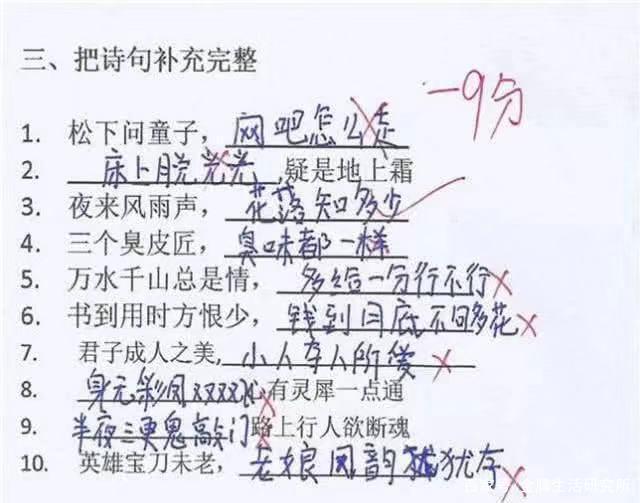 三、把诗句补充完整
-9分
1. 松下问童子，网吧怎么走
2. 床上脱光光,疑是地上霜
3. 夜来风雨声，花落知多少
4. 三个臭皮匠，臭味都一样
5. 万水千山总是情，多给一分行不行
6. 书到用时方恨少，钱到月底不够花
7. 君子成人之美,小人夺人所爱
8. 身无彩凤双双飞,有灵犀一点通
9. 半夜三更鬼敲门路上行人欲断魂
10. 英雄宝刀未老，老娘风韵犹存